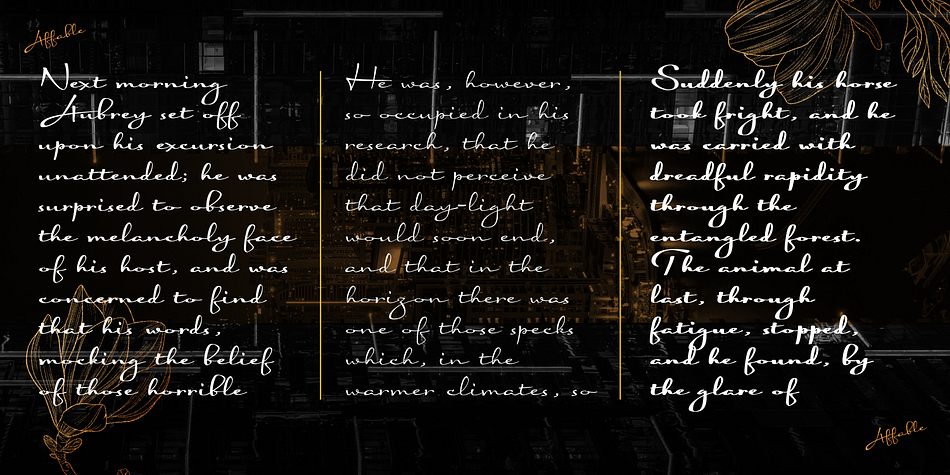 Affable
Next morning
Aubrey set off
upon his excursion
unattended; he was
surprised to observe
the melancholy face
of his host, and was
concerned to find
that his words,
mocking the belief
of those horrible
He was, however,
so occupied in his
research, that he
did not perceive
that day-light
would soon end,
and that in the
horizon there was
one of those specks
which, in the
warmer climates, so
Suddenly his horse
took fright, and he
was carried with
dreadful rapidity
through the
entangled forest.
The animal at
last, through
fatigue, stopped,
and he found, by
the glare of
Affable